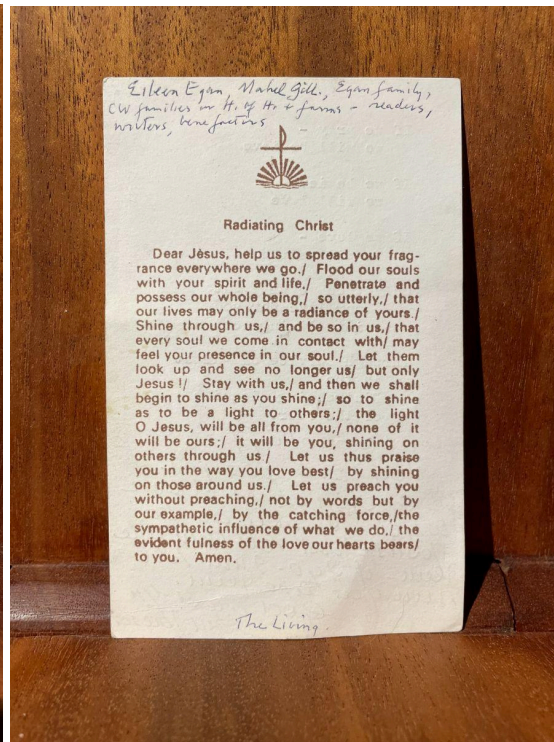 Eileen Egan, Mabel Gill., Egan family,
CW families in H. of H. + farms - readers,
writers, benefactors
Radiating Christ
Dear Jesus, help us to spread your frag-
rance everywhere we go./ Flood our souls
with your spirit and life./ Penetrate and
possess our whole being,/ so utterly,/ that
our lives may only be a radiance of yours./
Shine through us,/ and be so in us,/ that
every soul we come in contact with/ may
feel your presence in our soul./ Let them
look up and see no longer us/ but only
Jesus !/ Stay with us,/ and then we shall
begin to shine as you shine;/ so to shine
as to be a light to others;/ the light
O Jesus, will be all from you,/ none of it
will be ours;/ it will be you, shining on
others through us./ Let us thus praise
you in the way you love best/ by shining
on those around us./ Let us preach you
without preaching,/ not by words but by
our example,/ by the catching force,/the
sympathetic influence of what we do,/ the
evident fulness of the love our hearts bears/
to you. Amen.
The Living